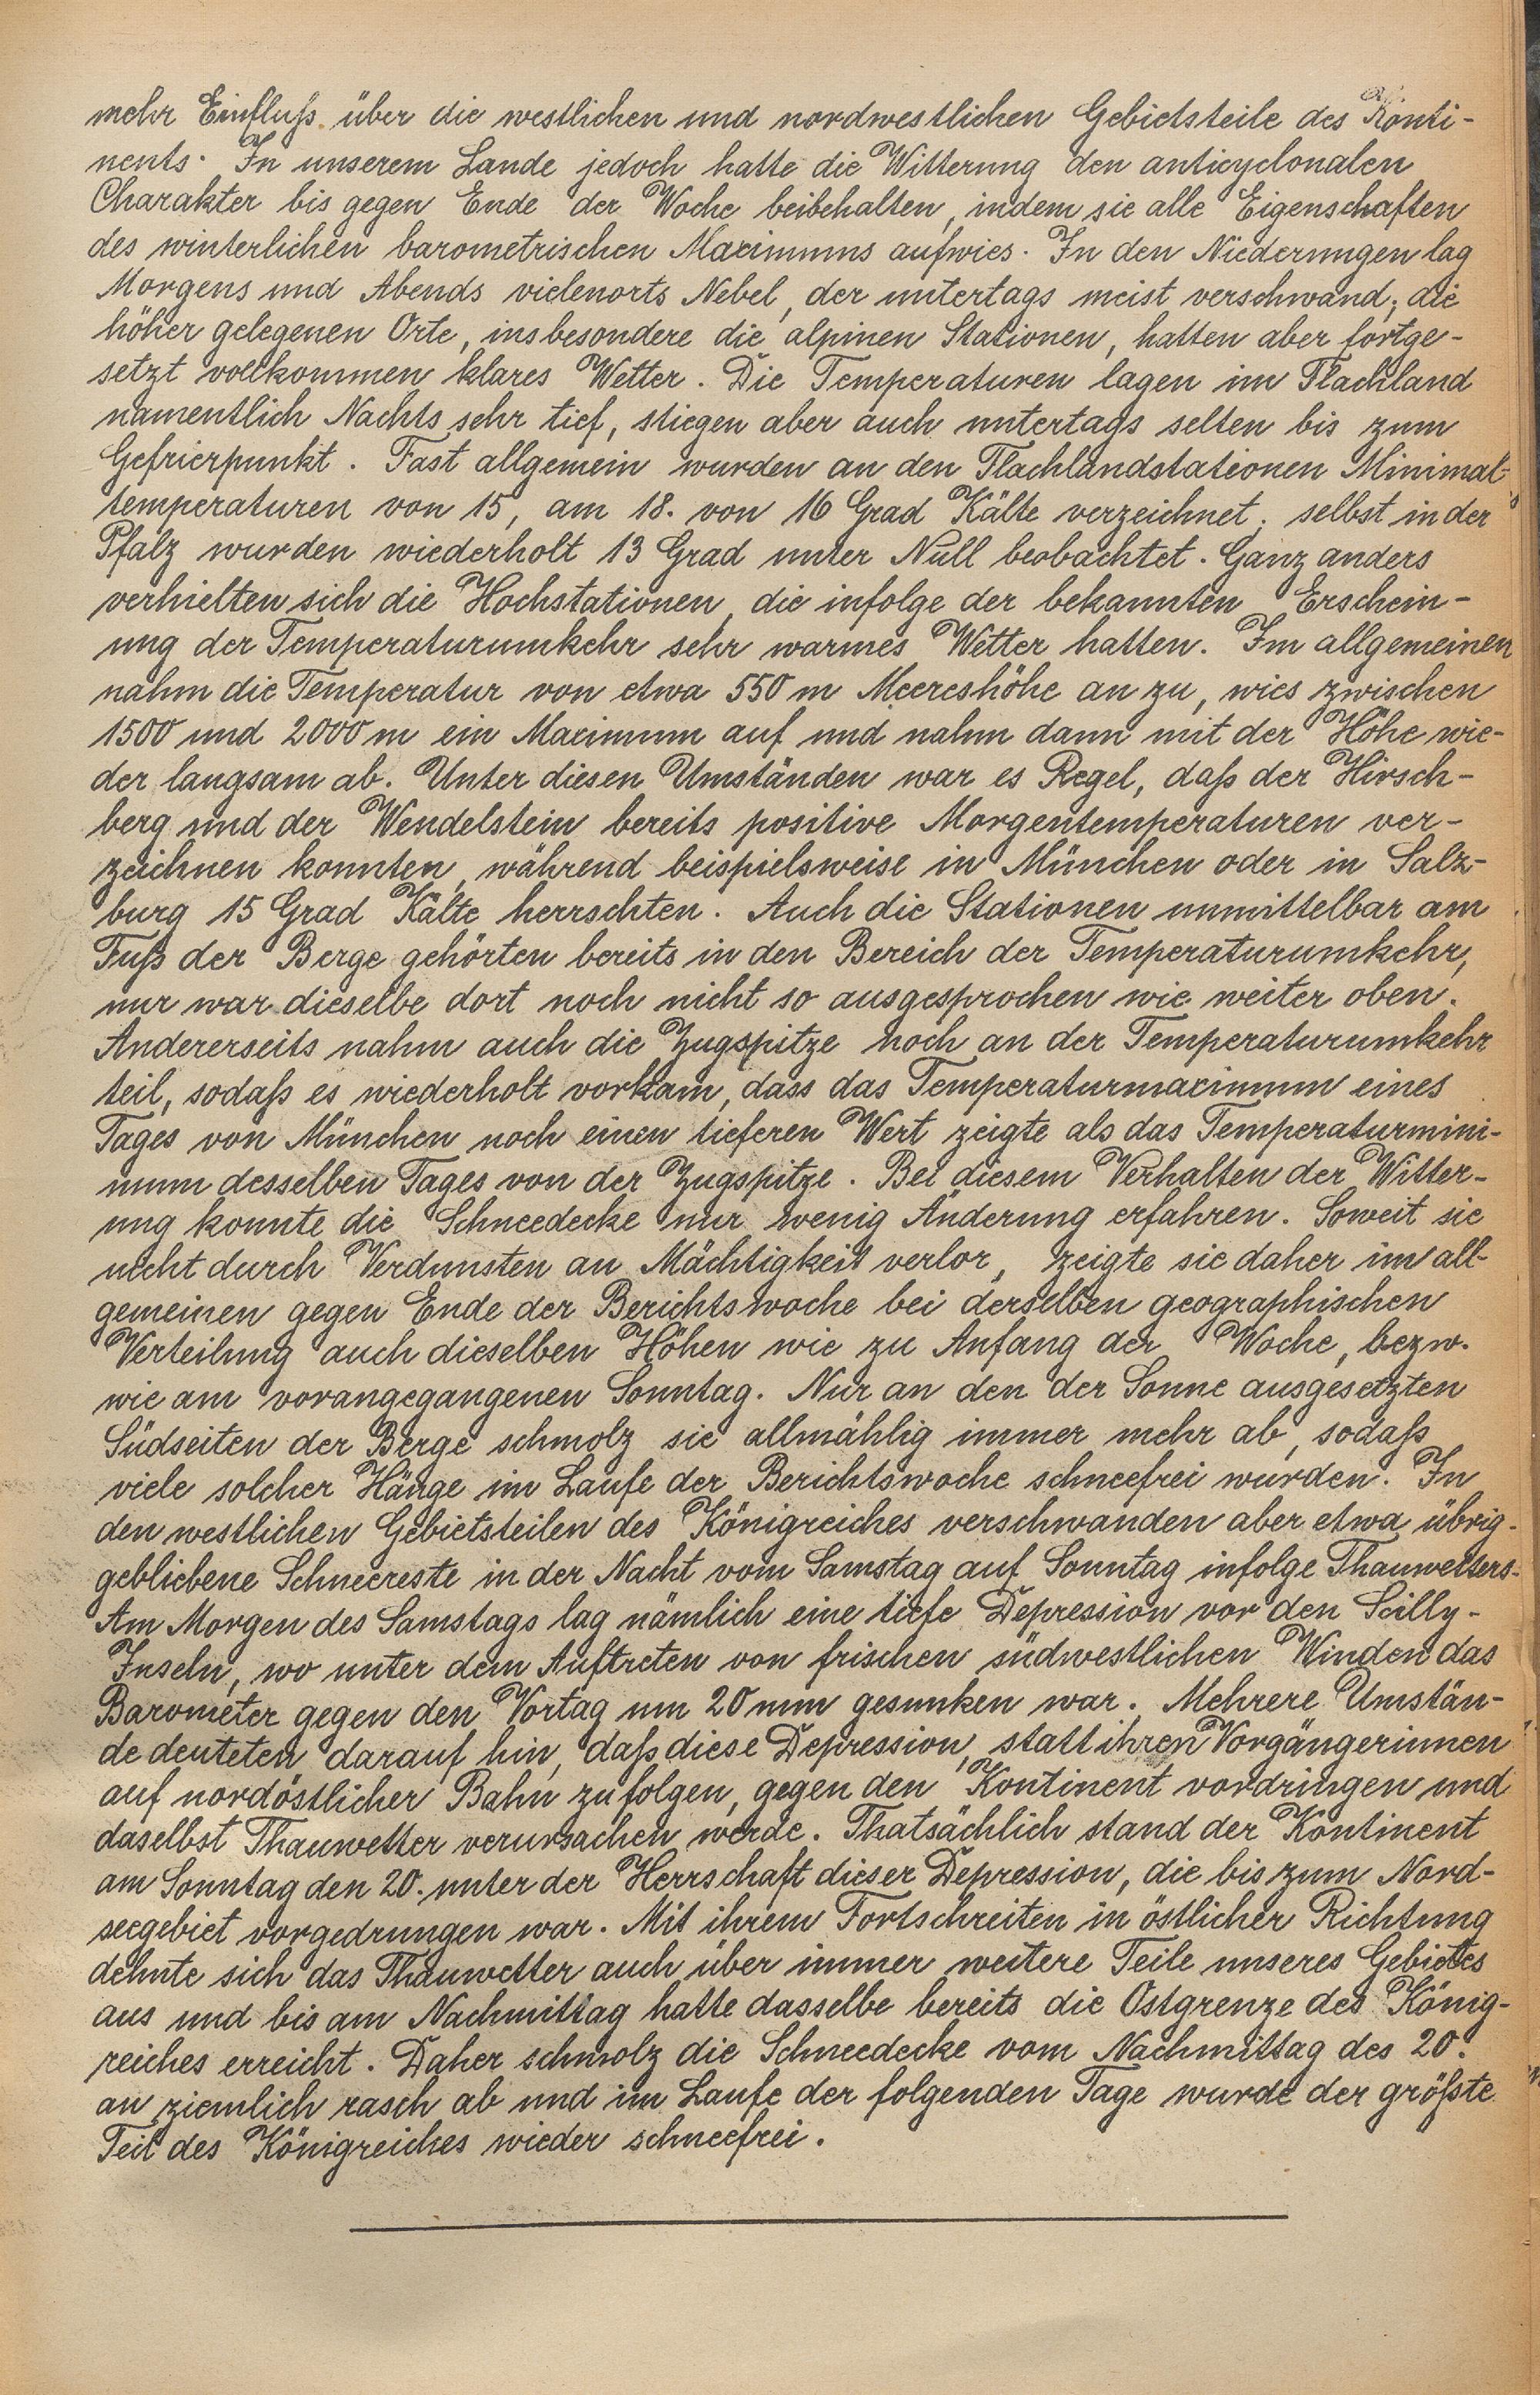 mehr Einfluß über die westlichen und nordwestlichen Gebietsteile des Konti-
nents. In unserem Lande jedoch hatte die Witterung den anticyclonalen
Charakter bis gegen Ende der Woche beibehalten, indem sie alle Eigenschaften
des winterlichen barometrischen Maximums aufwies. In den Niederungen lag
Morgens und Abends vielenorts Nebel, der untertags meist verschwand; die
höher gelegenen Orte, insbesondere die alpinen Stationen, hatten aber fortge-
setzt vollkommen klares Wetter. Die Temperaturen lagen im Flachland
namentlich Nachts sehr tief, stiegen aber auch untertags selten bis zum
Gefrierpunkt. Fast allgemein wurden an den Flachlandstationen Minimal-
temperaturen von 15, am 18. von 16 Grad Kälte verzeichnet; selbst in der
Pfalz wurden wiederholt 13 Grad unter Null beobachtet. Ganz anders
verhielten sich die Hochstationen, die infolge der bekannten Erschein-
ung der Temperaturumkehr sehr warmes Wetter hatten. Im allgemeinen
nahm die Temperatur von etwa 550 m Meereshöhe an zu, wies zwischen
1500 und 2000 m ein Maximum auf und nahm dann mit der Höhe wie-
der langsam ab. Unter diesen Umständen war es Regel, daß der Hirsch-
berg und der Wendelstein bereits positive Morgentemperaturen ver-
zeichnen konnten, während beispielsweise in München oder in Salz-
burg 15 Grad Kälte herrschten. Auch die Stationen unmittelbar am
Fuß der Berge gehörten bereits in den Bereich der Temperaturumkehr,
nur war dieselbe dort noch nicht so ausgesprochen wie weiter oben.
Andererseits nahm auch die Zugspitze noch an der Temperaturumkehr
teil, sodaß es wiederholt vorkam, dass das Temperaturmaximum eines
Tages von München noch einen tieferen Wert zeigte als das Temperaturmini-
mum desselben Tages von der Zugspitze. Bei diesem Verhalten der Witter-
ung konnte die Schneedecke nur wenig Änderung erfahren. Soweit sie
nicht durch Verdunsten an Mächtigkeit verlor, zeigte sie daher im all-
gemeinen gegen Ende der Berichtswoche bei derselben geographischen
Verteilung auch dieselben Höhen wie zu Anfang der Woche, bezw.
wie am vorangegangenen Sonntag. Nur an den der Sonne ausgesetzten
Südseiten der Berge schmolz sie allmählig immer mehr ab, sodaß
viele solcher Hänge im Laufe der Berichtswoche schneefrei wurden. In
den westlichen Gebietsteilen des Königreiches verschwanden aber etwa übrig-
gebliebene Schneereste in der Nacht vom Samstag auf Sonntag infolge Thauwetters.
Am Morgen des Samstags lag nämlich eine tiefe Depression vor den Scilly-
Inseln, wo unter dem Auftreten von frischen südwestlichen Winden das
Barometer gegen den Vortag um 20 mm gesunken war. Mehrere Umstän-
de deuteten darauf hin, daß diese Depression, statt ihren Vorgängerinnen
auf nordöstlicher Bahn zu folgen, gegen den Kontinent vordringen und
daselbst Thauwetter verursachen werde. Thatsächlich stand der Kontinent
am Sonntag den 20. unter der Herrschaft dieser Depression, die bis zum Nord-
seegebiet vorgedrungen war. Mit ihrem Fortschreiten in östlicher Richtung
dehnte sich das Thauwetter auch über immer weitere Teile unseres Gebietes
aus und bis am Nachmittag hatte dasselbe bereits die Ostgrenze des König-
reiches erreicht. Daher schmolz die Schneedecke vom Nachmittag des 20.
an ziemlich rasch ab und im Laufe der folgenden Tage wurde der größte
Teil des Königreiches wieder schneefrei.